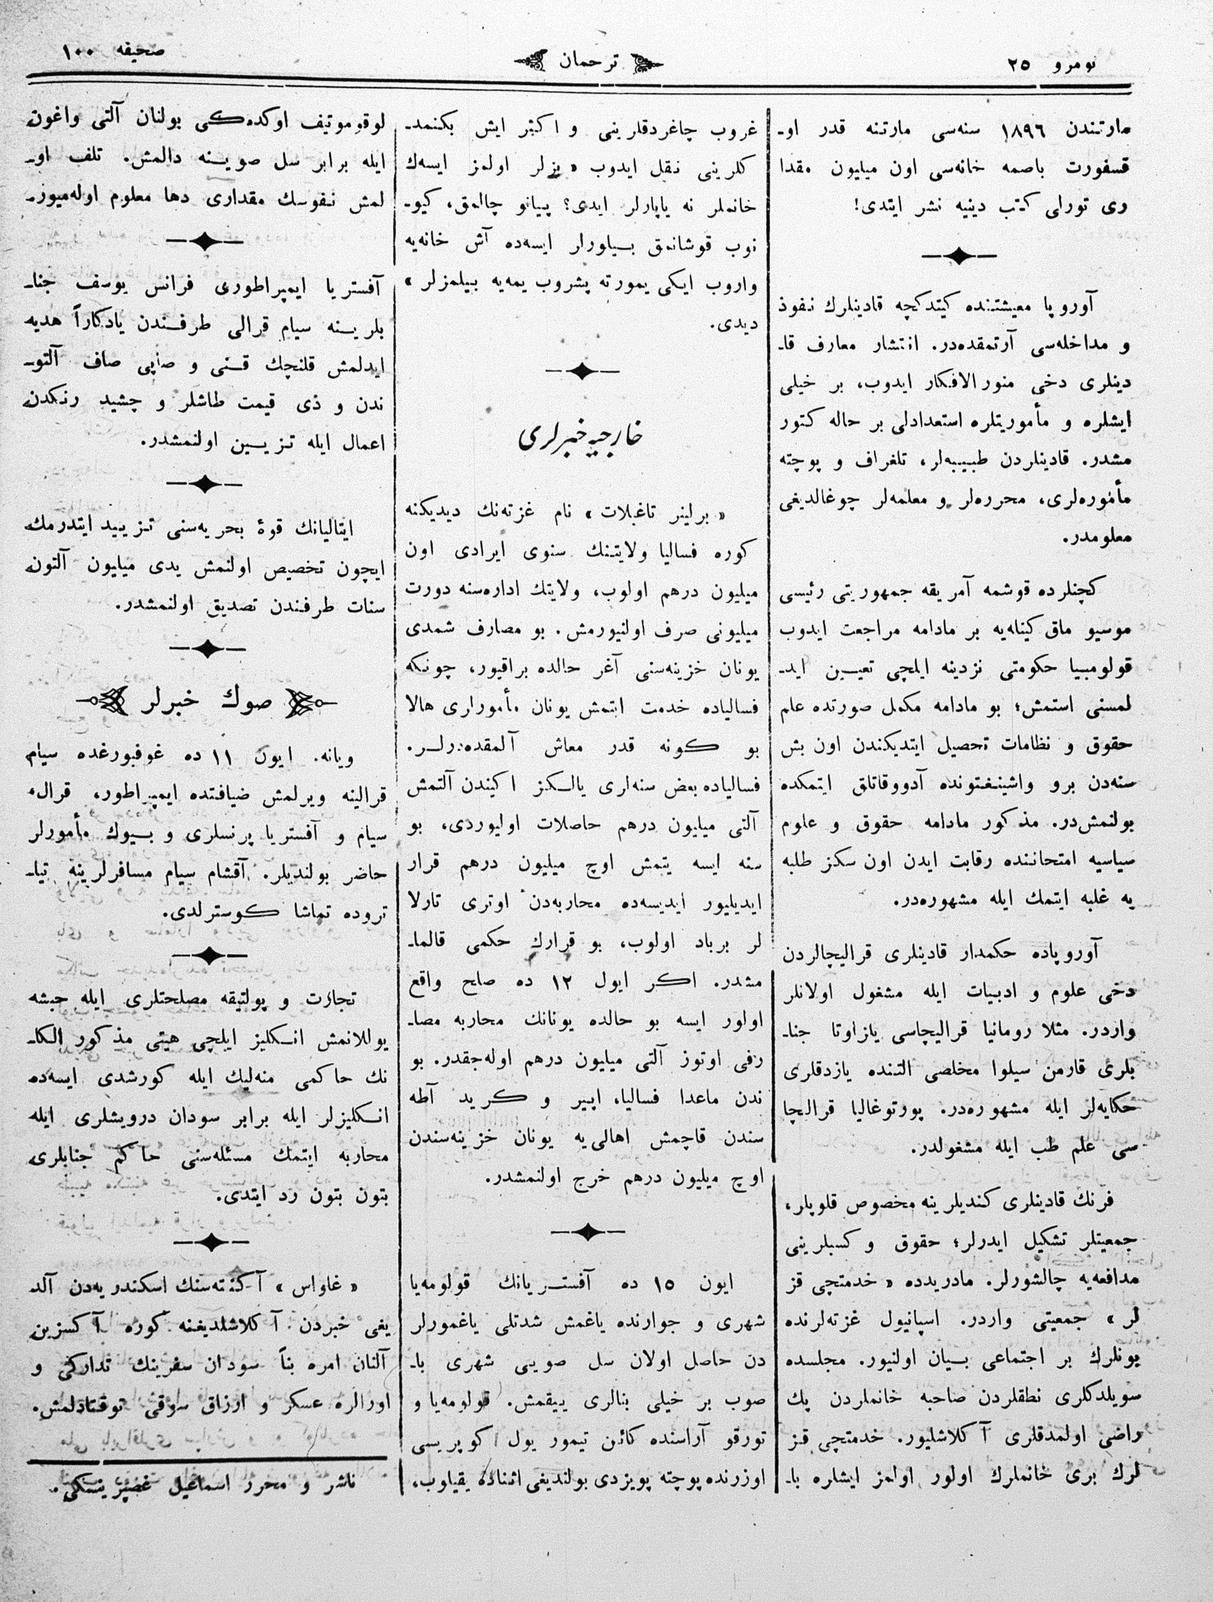 نومرو ٢٥
ترجمان
صحیفه ١٠٠
مارتندن ١٨٩٦ سنه‌سی مارتنه قدر او-
قسفورت باصمه خانه‌سی اون میلیون مقدا
ری تورلی کتب دینیه نشر ایتدی!
آوروپا معیشتنده کیتدکچه قادینلرك نفوذ
و مداخله‌سی آرتمقده‌در. انتشار معارف قا-
دینلری دخی منور الافکار ایدوب، بر خیلی
ایشلره و مأموریتلره استعدادلی بر حاله کتور
مشدر. قادینلردن طبیبه‌لر، تلغراف و پوچته
مأموره‌لری، محرره‌لر و معلمه‌لر چوغالدیغی
معلومدر.
کچنلرده قوشمه آمریقه جمهوریتی رئیسی
موسیو ماق کینله‌یه بر مادامه مراجعت ایدوب
قولومبیا حکومتی نزدینه ایلچی تعیین اید-
لمسنی استمش؛ بو مادامه مکمل صورتده علم
حقوق و نظامات تحصیل ایتدیکندن اون بش
سنه‌دن برو واشینغتونده آدووقاتلق ایتمکده
بولنمش‌در. مذکور مادامه حقوق و علوم
سیاسیه امتحاننده رقابت ایدن اون سکز طلبه
یه غلبه ایتمك ایله مشهوره‌در.
آوروپاده حکمدار قادینلری قرالیچالردن
دخی علوم و ادبیات ایله مشغول اولانلر
واردر. مثلا رومانیا قرالیچاسی یلزاوتا جنا-
بلری قارمن سیلوا مخلصی التنده یازدقلری
حکایه‌لر ایله مشهوره‌در. پورتوغالیا قرالیچا
سی علم طب ایله مشغولدر.
فرنك قادینلری کندیلرینه مخصوص قلوپلر،
جمعیتلر تشکیل ایدرلر؛ حقوق و کسبلرینی
مدافعه‌یه چالشورلر. مادریدده «خدمتچی قز
لر» جمعیتی واردر. اسپانیول غزته‌لرنده
بونلرك بر اجتماعی بیان اولنیور. مجلسده
سویلدکلری نطقلردن صاحبه خانملردن پك
راضی اولمدقلری آکلاشلیور. خدمتچی قز
لرك بری خانملرك اولور اولمز ایشلره با-
غروب چاغردقلرینی و اکثر ایش بکنمد-
کلرینی نقل ایدوب «بزلر اولمز ایسه‌ك
خانملر نه یاپارلر ایدی؟ پیانو چالمق، کیو-
نوب قوشانمق بیلورلر ایسه‌ده آش خانه‌یه
واروب ایکی یمورته پشروب یمه‌یه بیلمزلر»
دیدی.
خارجیه خبرلری
«برلینر تاغبلات» نام غزته‌نك دیدیکنه
کوره فسالیا ولایتنك سنوی ایرادی اون
میلیون درهم اولوب، ولایتك اداره‌سنه دورت
میلیونی صرف اولنیورمش. بو مصارف شمدی
یونان خزینه‌سنی آغر حالده براقیور، چونکه
فسالیاده خدمت ایتمش یونان مأمورلری هالا
بو کونه قدر معاش آلمقده‌درلر.
فسالیاده بعض سنه‌لری یالکز اکیندن آلتمش
آلتی میلیون درهم حاصلات اولیوردی، بو
سنه ایسه یتمش اوچ میلیون درهم قرار
ایدیلیور ایدیسه‌ده محاربه‌دن اوتری تارلا
لر برباد اولوب، بو قرارك حکمی قالما-
مشدر. اکر ایول ١٢ ده صلح واقع
اولور ایسه بو حالده یونانك محاربه مصا-
رفی اوتوز آلتی میلیون درهم اوله‌جقدر. بو
ندن ماعدا فسالیا، اپیر و کرید آطه
سندن قاچمش اهالی‌یه یونان خزینه‌سندن
اوچ میلیون درهم خرج اولنمشدر.
ایون ١٥ ده آفستریانك قولومه‌یا
شهری و جوارنده یاغمش شدتلی یاغمورلر
دن حاصل اولان سل صویی شهری با-
صوب بر خیلی بنالری ییقمش. قولومه‌یا و
تورقو آراسنده کائن تیمور یول کوپریسی
اوزرنده پوچته پویزدی بولندیغی اثناده یقیلوب،
لوقوموتیف اوکده‌کی بولنان آلتی واغون
ایله برابر سل صوینه دالمش. تلف او-
لمش نفوسك مقداری دها معلوم اوله‌میور.
آفستریا ایمپراطوری فرانس یوسف جنا-
بلرینه سیام قرالی طرفندن یادکاراً هدیه
ایدلمش قلنچك قنی و صاپی صاف آلتو-
ندن و ذی قیمت طاشلر و چشید رنکدن
اعمال ایله تزیین اولنمشدر.
ایتالیانك قوهٔ بحریه‌سنی تزیید ایتدرمك
ایچون تخصیص اولنمش یدی میلیون آلتون
سنات طرفندن تصدیق اولنمشدر.
صوك خبرلر
ویانه. ایون ١١ ده غوفبورغده سیام
قرالینه ویرلمش ضیافتده ایمپراطور، قرال،
سیام و آفستریا پرنسلری و بیوك مأمورلر
حاضر بولندیلر. آقشام سیام مسافرلرینه تیا-
تروده تماشا کوسترلدی.
تجارت و پولتیقه مصلحتلری ایله حبشه
یوللانمش انکلیز ایلچی هیتی مذکور الکا-
نك حاکمی منه‌لیك ایله کورشدی ایسه‌ده
انکلیزلر ایله برابر سودان درویشلری ایله
محاربه ایتمك مسئله‌سنی حاکم جنابلری
بتون بتون رد ایتدی.
«غاواس» آکنته‌سنك اسکندریه‌دن آلد
یغی خبردن آکلاشلدیغنه کوره آکسزین
آلنان امره بناً سودان سفرینك تدارکی و
اورالره عسکر و ارزاق سوقی توقتادلمش.
ناشر و محرر اسماعیل غصپرینسکی.